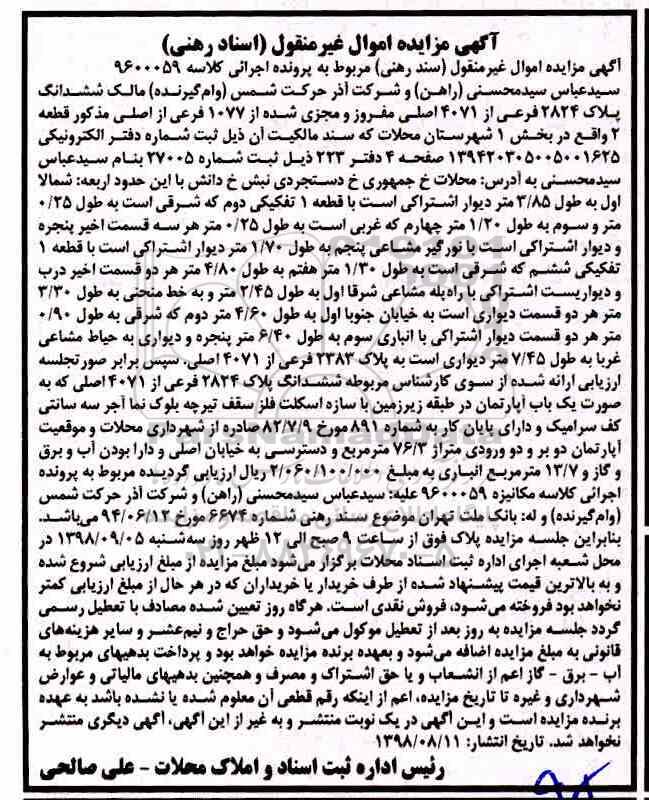 آگهی مزایده اموال غیرمنقول (اسناد رهنی)
آگهی مزایده اموال غیرمنقول (سند رهنی) مربوط به پرونده اجرائی کلاسه ۹۶۰۰۰۵۹
سیدعباس سیدمحسنی (راهن) و شرکت آذر حرکت شمس (وام‌گیرنده) مالک ششدانگ
پلاک ۲۸۲۴ فرعی از ۴۰۷۱ اصلی مفروز و مجزی شده از ۱۰۷۷ فرعی از اصلی مذکور قطعه
۲ واقع در بخش ۱ شهرستان محلات که سند مالکیت آن ذیل ثبت شماره دفتر الکترونیکی
۱۳۹۴۲۰۳۰۵۰۰۵۰۰۱۶۲۵ صفحه ۴ دفتر ۲۲۳ ذیل ثبت شماره ۲۷۰۰۵ بنام سیدعباس
سیدمحسنی به آدرس: محلات خ جمهوری خ دستجردی نبش خ دانش با این حدود اربعه: شمالا
اول به طول ۳/۸۵ متر دیوار اشتراکی است با قطعه ۱ تفکیکی دوم که شرقی است به طول ۰/۲۵
متر و سوم به طول ۱/۲۰ متر چهارم که غربی است به طول ۰/۲۵ متر هر سه قسمت اخیر پنجره
و دیوار اشتراکی است با نورگیر مشاعی پنجم به طول ۱/۷۰ متر دیوار اشتراکی است با قطعه ۱
تفکیکی ششم که شرقی است به طول ۱/۳۰ متر هفتم به طول ۴/۸۰ متر هر دو قسمت اخیر درب
و دیواریست اشتراکی با راه‌پله مشاعی شرقا اول به طول ۲/۴۵ متر و به خط منحنی به طول ۳/۳۰
متر هر دو قسمت دیواری است به خیابان جنوبا اول به طول ۴/۶۰ متر دوم که شرقی به طول ۰/۹۰
متر هر دو قسمت دیوار اشتراکی با انباری سوم به طول ۶/۴۰ متر پنجره و دیواری به حیاط مشاعی
غربا به طول ۷/۴۵ متر دیواری است به پلاک ۲۳۸۳ فرعی از ۴۰۷۱ اصلی، سپس برابر صورتجلسه
ارزیابی ارائه شده از سوی کارشناس مربوطه ششدانگ پلاک ۲۸۲۴ فرعی از ۴۰۷۱ اصلی که به
صورت یک باب آپارتمان در طبقه زیرزمین با سازه اسکلت فلز سقف تیرچه بلوک نما آجر سه سانتی
کف سرامیک و دارای پایان کار به شماره ۸۹۱ مورخ ۸۲/۷/۹ صادره از شهرداری محلات و موقعیت
آپارتمان دو بر و دو ورودی متراژ ۷۶/۳ مترمربع و دسترسی به خیابان اصلی و دارا بودن آب و برق
و گاز و ۱۳/۷ مترمربع انباری به مبلغ ۲/۰۶۰/۱۰۰/۰۰۰ ریال ارزیابی گردیده مربوط به پرونده
اجرائی کلاسه مکانیزه ۹۶۰۰۰۵۹ علیه: سیدعباس سیدمحسنی (راهن) و شرکت آذر حرکت شمس
(وام‌گیرنده) و له: بانک ملت تهران موضوع سند رهنی شماره ۶۶۷۴ مورخ ۹۴/۰۶/۱۲ می‌باشد.
بنابراین جلسه مزایده پلاک فوق از ساعت ۹ صبح الی ۱۲ ظهر روز سه‌شنبه ۱۳۹۸/۰۹/۰۵ در
محل شعبه اجرای اداره ثبت اسناد محلات برگزار می‌شود مبلغ مزایده از مبلغ ارزیابی شروع شده
و به بالاترین قیمت پیشنهاد شده از طرف خریدار یا خریداران که در هر حال از مبلغ ارزیابی کمتر
نخواهد بود فروخته می‌شود، فروش نقدی است. هرگاه روز تعیین شده مصادف با تعطیل رسمی
گردد جلسه مزایده به روز بعد از تعطیل موکول می‌شود و حق حراج و نیم‌عشر و سایر هزینه‌های
قانونی به مبلغ مزایده اضافه می‌شود و بعهده برنده مزایده خواهد بود و پرداخت بدهیهای مربوط به
آب - برق - گاز اعم از انشعاب و یا حق اشتراک و مصرف و همچنین بدهیهای مالیاتی و عوارض
شهرداری و غیره تا تاریخ مزایده، اعم از اینکه رقم قطعی آن معلوم شده یا نشده باشد به عهده
برنده مزایده است و این آگهی در یک نوبت منتشر و به غیر از این آگهی، آگهی دیگری منتشر
نخواهد شد. تاریخ انتشار: ۱۳۹۸/۰۸/۱۱
رئیس اداره ثبت اسناد و املاک محلات - علی صالحی